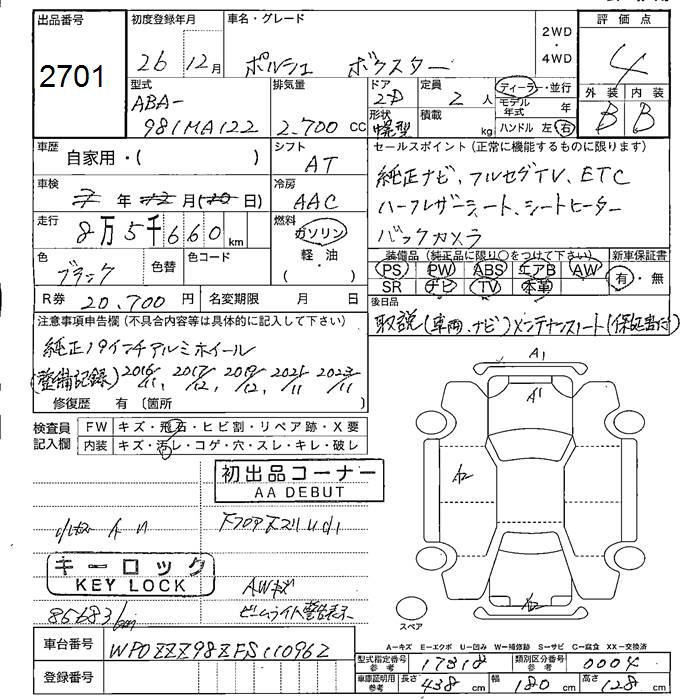 出品番号 初度登録年月 車名・グレード 2WD・4WD 評価点
2701 26年12月 ポルシェ ボクスター 4
型式 排気量 ドア 定員 ディーラー・並行 外装 内装
ABA-
981MA122 2.700cc 2D 2人 モデル年式 年 B B
形状 積載 kg ハンドル 左 右
車歴 自家用・( ) シフト AT
セールスポイント(正常に機能するものに限ります)
純正ナビ、フルセグTV、ETC
ハーフレザーシート、シートヒーター
バックカメラ
車検 7年12月(20日) 冷房 AAC
走行 8万5千660km 燃料 ガソリン・軽・油( )
装備品(純正品に限り○をつけて下さい) 新車保証書
PS PW ABS エアB AW 有・無
SR ナビ TV 本革
色 ブラック 色替 色コード
R券 20.700円 名変期限 月 日
後日品
取説(車両、ナビ)メンテナンスノート(保証書付)
注意事項申告欄(不具合内容等は具体的に記入して下さい)
純正19インチアルミホイール
(整備記録)2016/11、2017/12、2019/12、2021/11 2023/11
修復歴 有〔箇所
検査員記入欄 FW キズ・飛石・ヒビ割・リペア跡・X要
内装 キズ・汚レ・コゲ・穴・スレ・キレ・破レ
初出品コーナー
AA DEBUT
キーロック
KEY LOCK
AWキズ
85683km
A1
A1
A2
A2
スペア
A－キズ E－エクボ U－凹み W－補修跡 S－サビ C－腐食 XX－交換済
車台番号 WP0ZZZ98ZFS110962
登録番号
型式指定番号 参考 17318 類別区分番号 参考 0004
車庫証明用 参考 長さ 438cm 幅 180cm 高さ 128cm